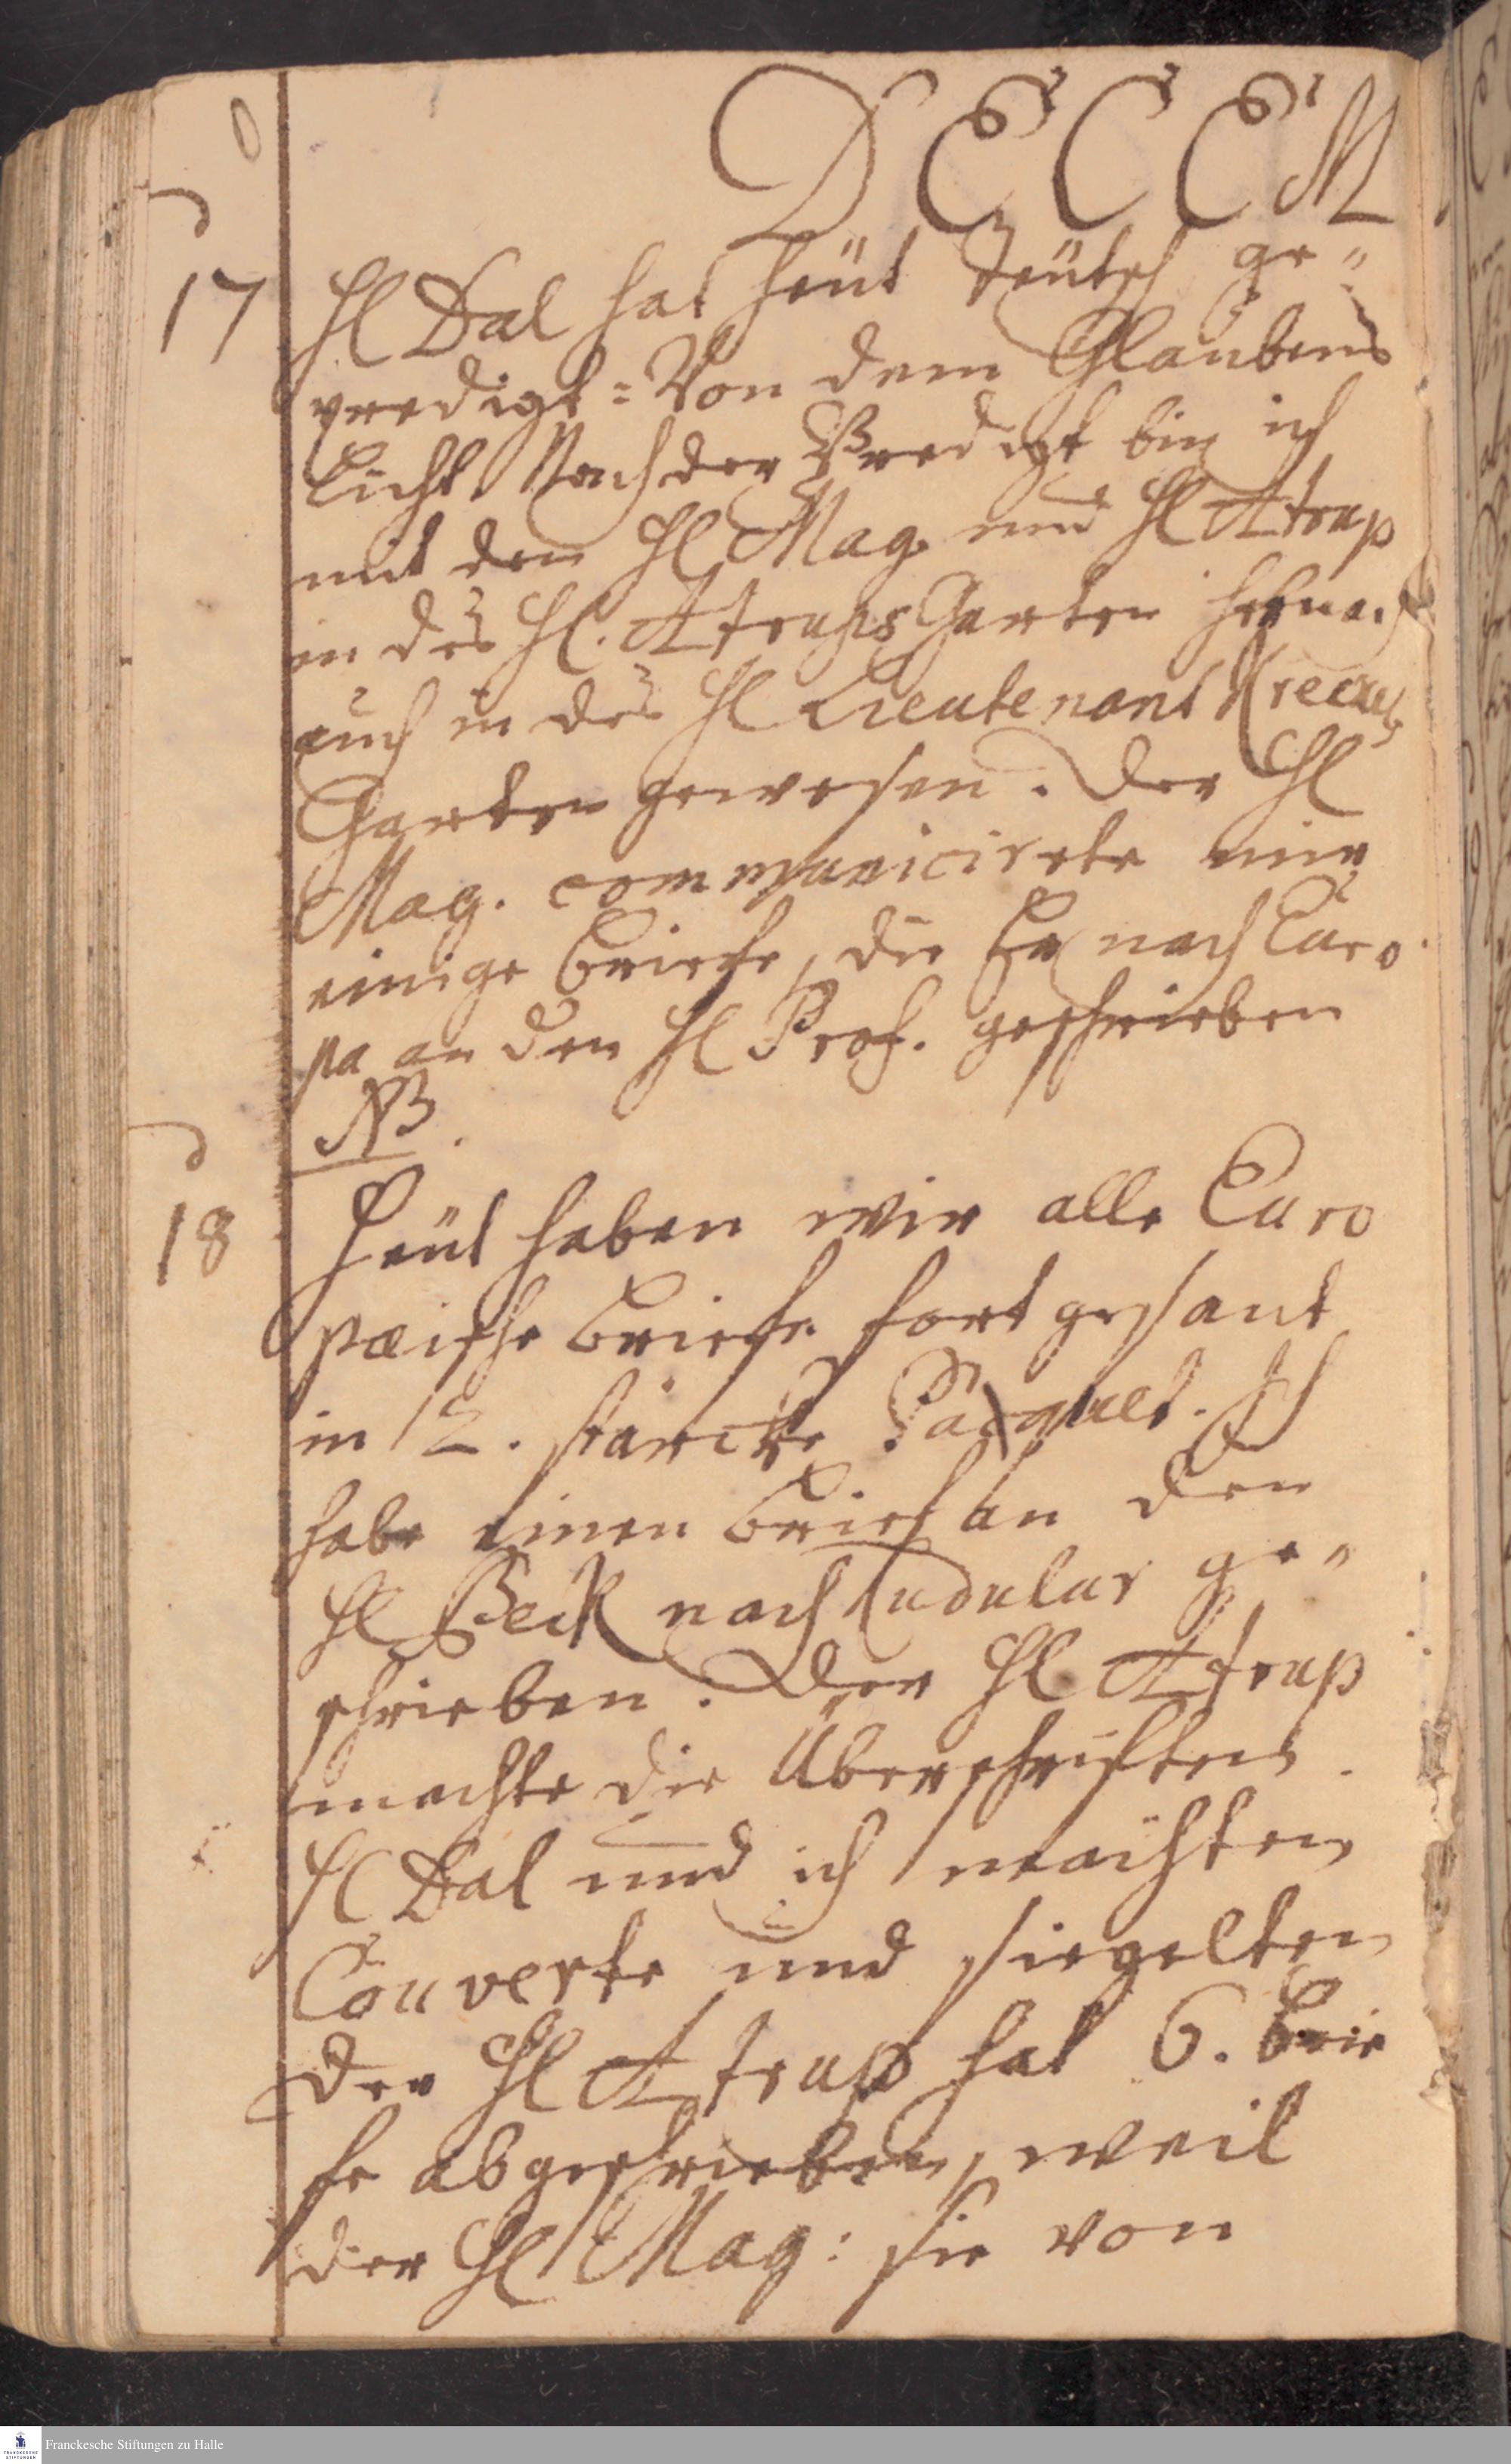 DECEM
17 Hl Dal hat heüt deütsch ge„
predigt: Von dem Glaubens
Licht. Nach der Predigt bin ich
mit den Hl Mag. und Hl Attrup
in des Hl. Attrups Garten hernach
auch in des Hl Lieutenant
Garten gewesen. Der Hl
Mag. communicirete mir
einige Briefe, die Er nach Euro
pa an den Hl Prof. geschrieben
NB.
18 Heüt haben wir alle Euro
pæische Briefe fort gesant
in 12. starcke Pacquet. Ich
habe einen Brief an den
Hl Beck nach Cudulur ge„
schrieben. Der Hl Attrup
machte die Überschriften.
Hl Dal und ich machten
Couverte und siegelten
der Hl Attrup hat 6. Brie
fe abgeschrieben, weil
der Hl Mag: sie von
Franckesche Stiftungen zu Halle